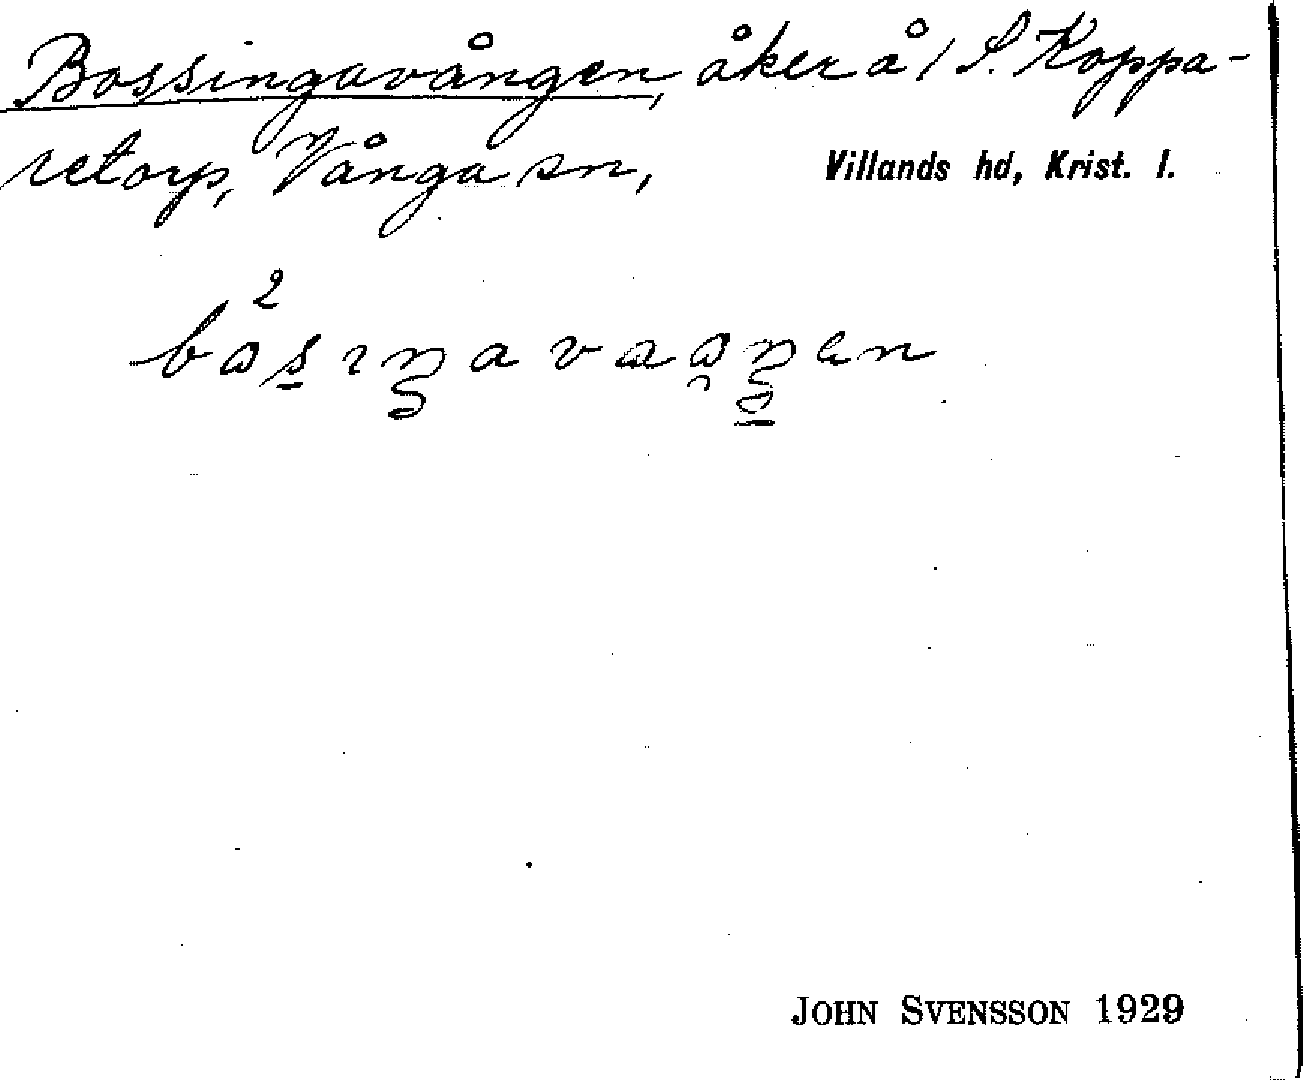 Bossingavången, åker å / S. Koppa-
retorp, Vånga sn, Villands hd, Krist. l.
JOHN SVENSSON 1929